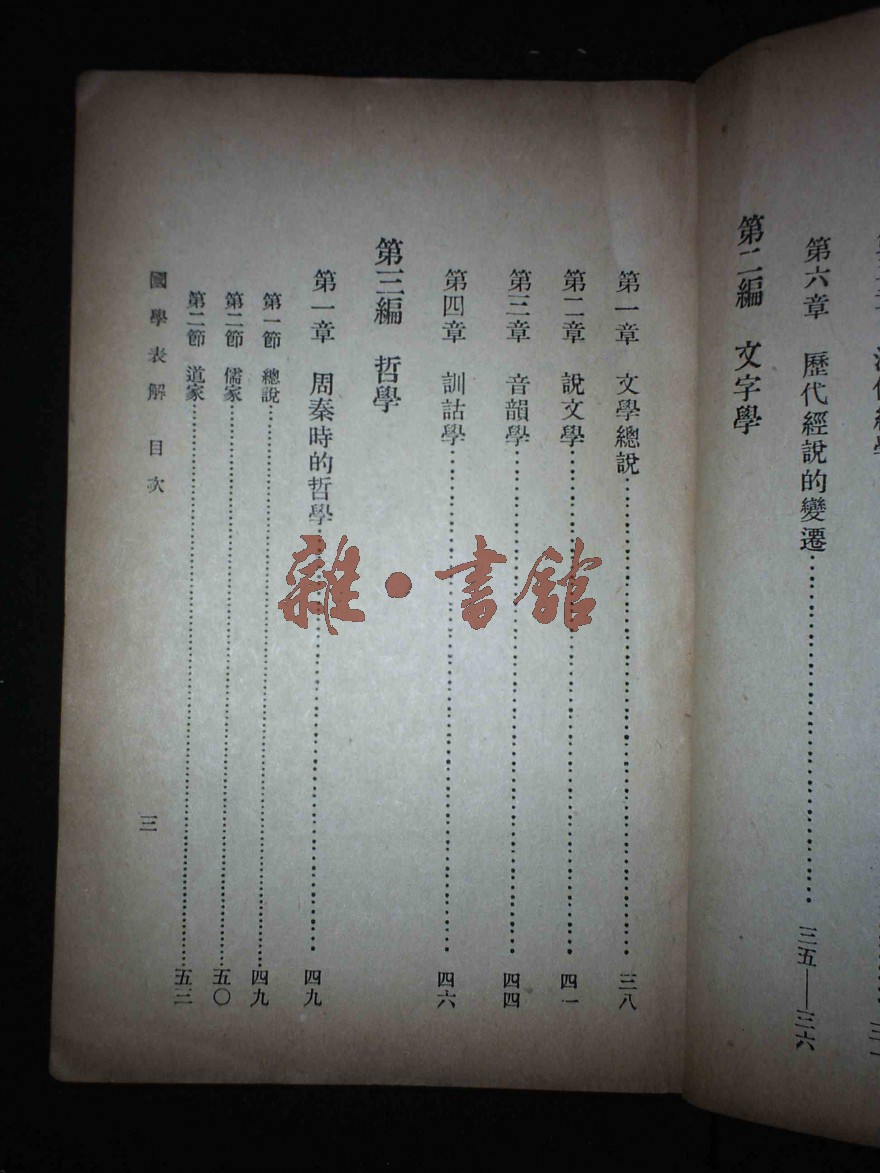 第六章 歷代經說的變遷……三五——三六
第二編 文字學
第一章 文學總說……三八
第二章 說文學……四一
第三章 音韻學……四四
第四章 訓詁學……四六
第三編 哲學
第一章 周秦時的哲學……四九
第一節 總說……四九
第二節 儒家……五〇
第二節 道家……五三
國學表解 目次
三
雜·書館